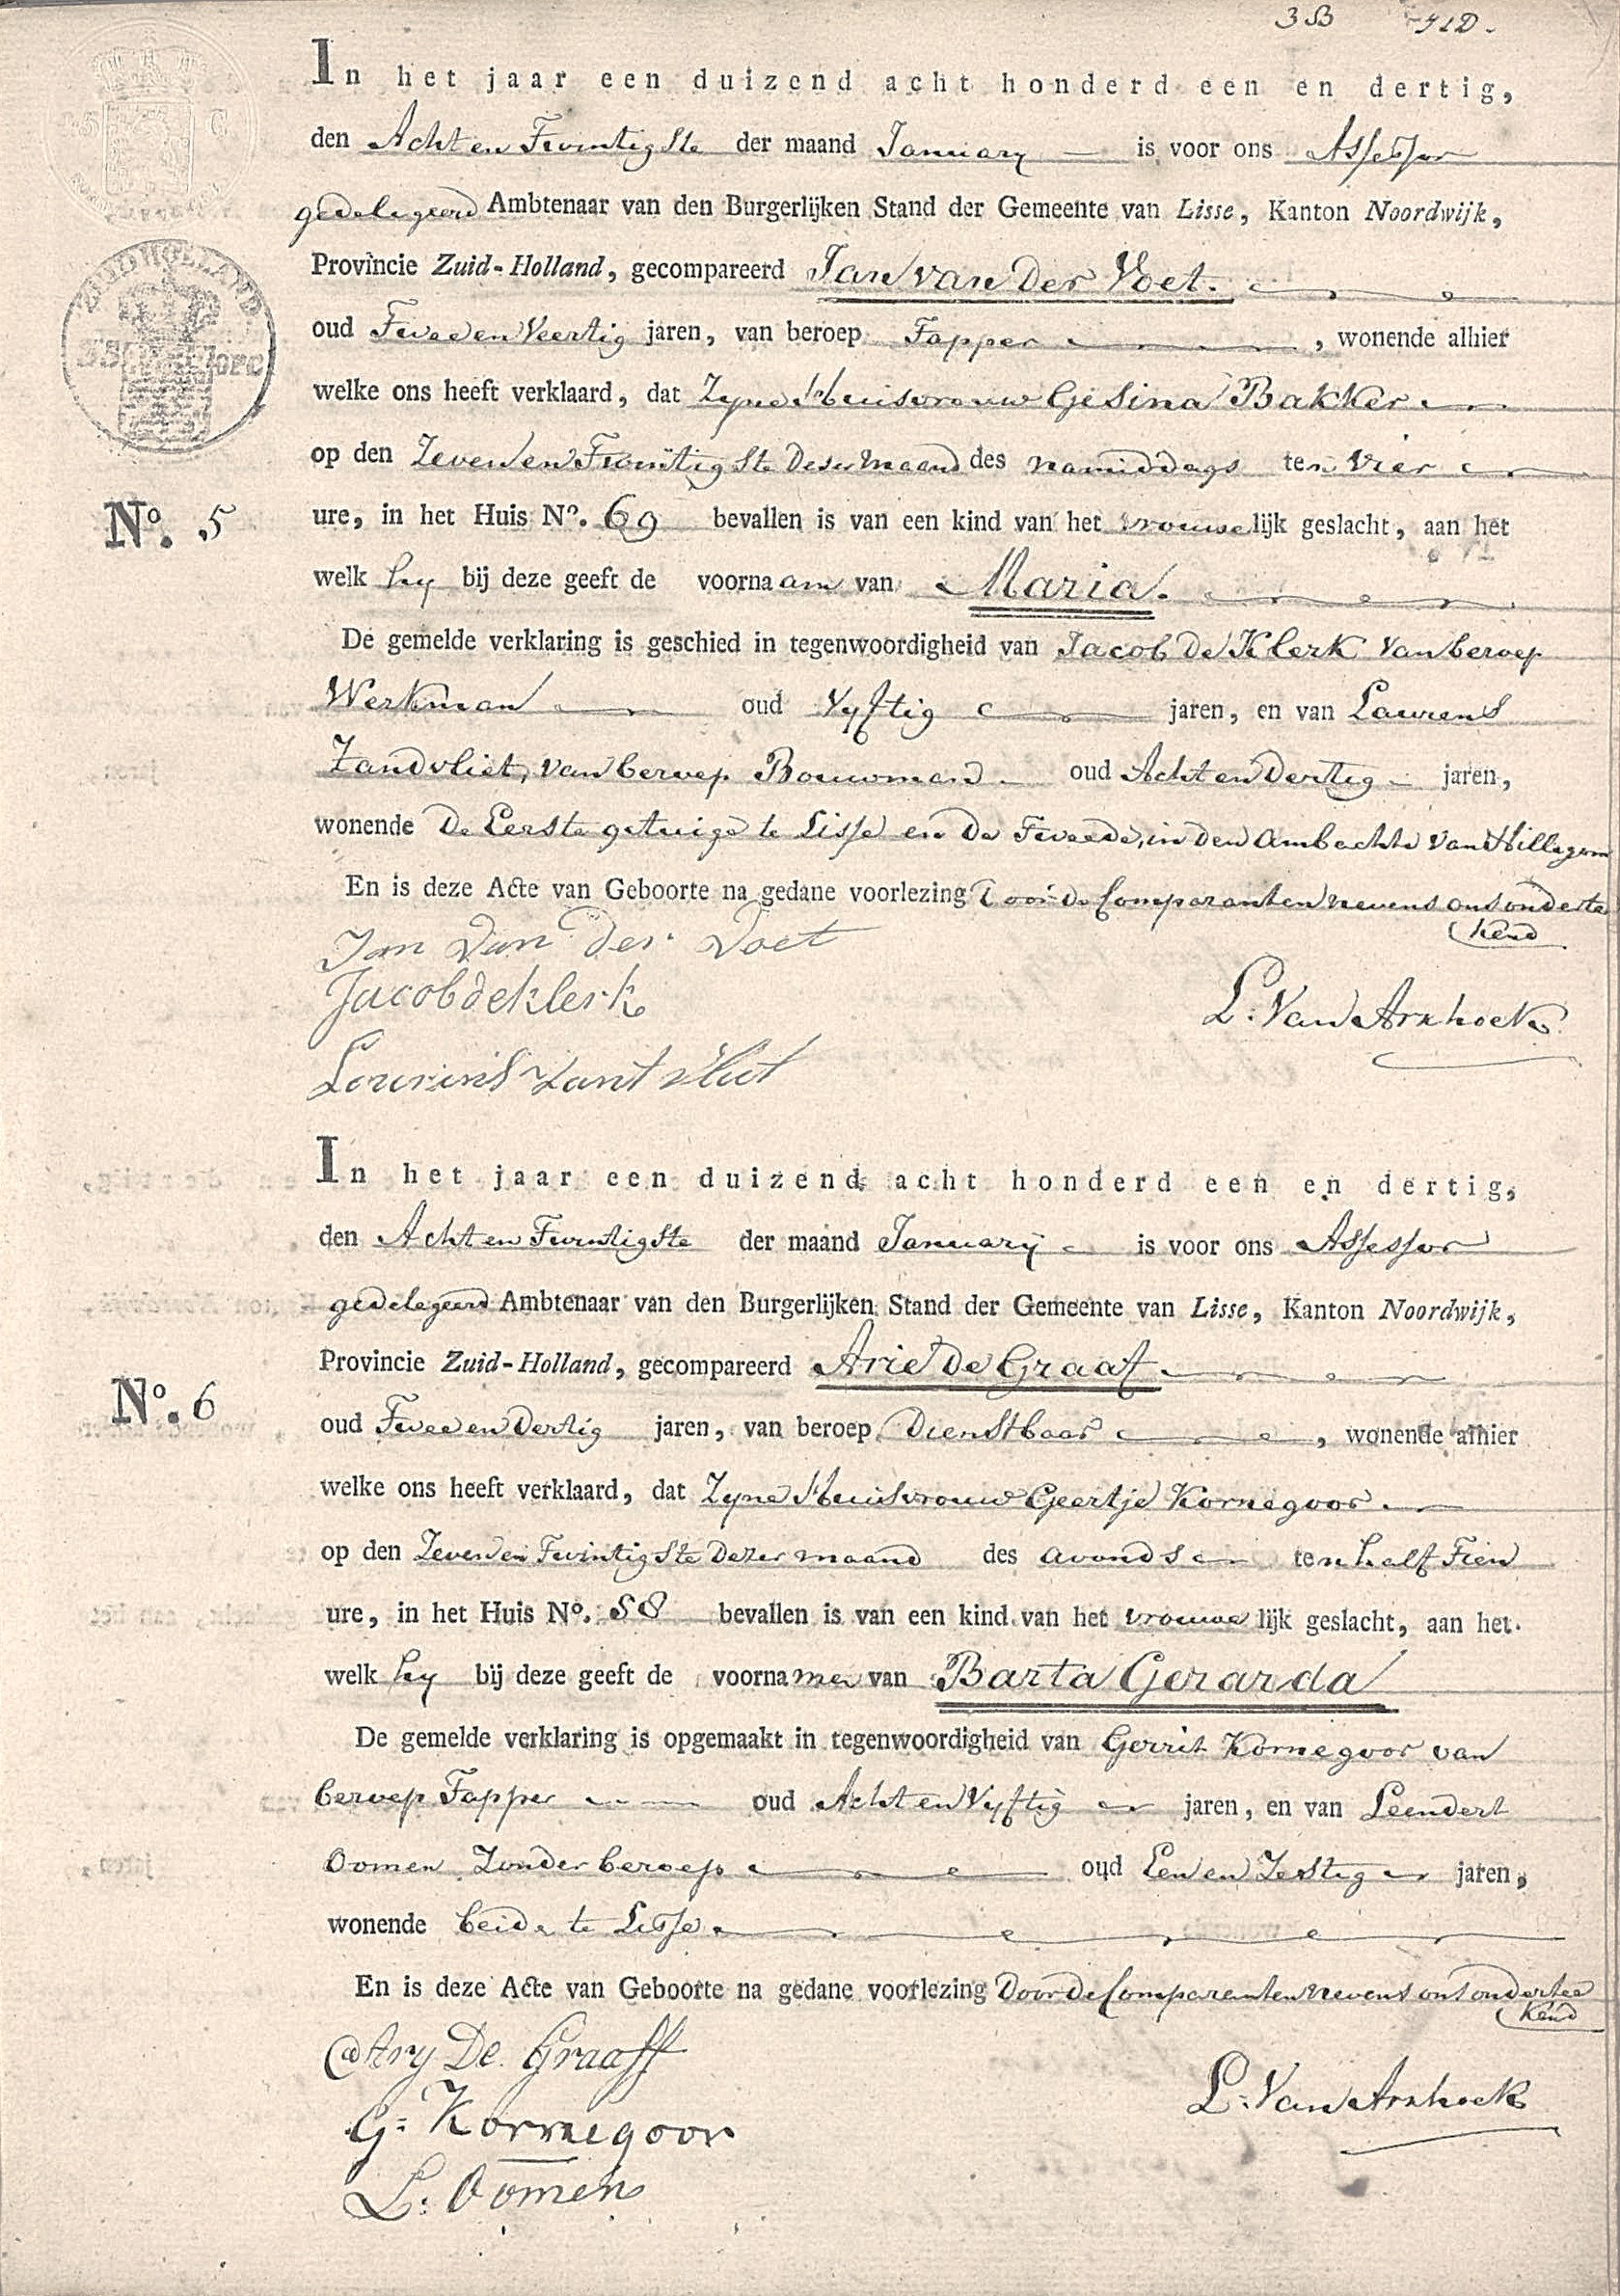 3B
In het jaar een duizend acht honderd een en dertig,
den Acht en Twintigste der maand January is voor ons Assessor
gedelegeerd Ambtenaar van den Burgerlijken Stand der Gemeente van Lisse, Kanton Noordwijk,
ZUID HOLLAND
Provincie Zuid-Holland, gecompareerd Jan van Der Voet.
oud Twee en Veertig jaren, van beroep Tapper, wonende alhier
welke ons heeft verklaard, dat Zyne Huisvrouw Gesina Bakker
op den Zeven en Twintigste Deser maand des namiddags ten Vier
No. 5
ure, in het Huis No. 69 bevallen is van een kind van het vrouwelijk geslacht, aan het
welk hy bij deze geeft de voornaam van Maria.
De gemelde verklaring is geschied in tegenwoordigheid van Jacob De Klerk van beroep
Werkman oud Vyftig jaren, en van Laurens
Zandvliet, van beroep Bouwman oud Acht en Dertig jaren,
wonende De Eerste getuige te Lisse en De Tweede, in den Ambachte van Hillegom
En is deze Acte van Geboorte na gedane voorlezing Door De Comparanten nevens ons onderte
kend
Jan Van Der Voet
Jacob de klerk
L. Van Arnhoek
Lourins Zantvliet
In het jaar een duizend acht honderd een en dertig,
den Acht en Twintigste der maand January is voor ons Assessor
gedelegeerd Ambtenaar van den Burgerlijken Stand der Gemeente van Lisse, Kanton Noordwijk,
Provincie Zuid-Holland, gecompareerd Arie De Graaf
No. 6
oud Twee en Dertig jaren, van beroep Dienstbaar, wonende alhier
welke ons heeft verklaard, dat Zyne Huisvrouw Geertje Kornegoor
op den Zeven en Twintigste Dezer maand des avonds ten half Tien
ure, in het Huis No. 58 bevallen is van een kind van het vrouwelijk geslacht, aan het
welk hy bij deze geeft de voornamen van Barta Gerarda
De gemelde verklaring is opgemaakt in tegenwoordigheid van Gerrit Kornegoor van
beroep Tapper oud Acht en Vyftig jaren, en van Leendert
Oomen Zonder beroep oud Een en Zestig jaren,
wonende beide te Lisse
En is deze Acte van Geboorte na gedane voorlezing Door De Comparanten nevens ons ondertee
kend
Ary De Graaff
L. Van Arnhoek
G. Kornegoor
L. Oomen